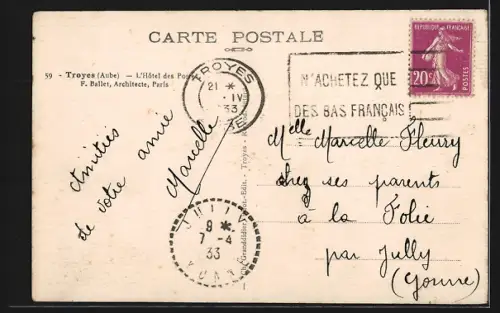 CARTE POSTALE
59 - Troyes (Aube) — L'Hôtel des Postes
F. Ballet, Architecte, Paris
TROYES
21 *
IV
33
N'ACHETEZ QUE
DES BAS FRANÇAIS
REPUBLIQUE FRANÇAISE
20c
POSTES
Amitiés
de votre amie
Marcelle
Granddidier
Edit. - Troyes
JULLY
9 *
7 - 4
33
YONNE
Melle Marcelle Fleury
chez ses parents
à la Folie
par Jully
(Yonne)